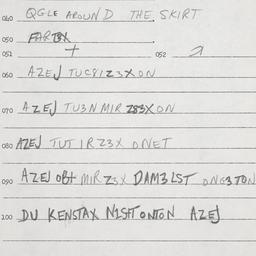 040 OGLE AROUND THE SKIRT
050 FARTBX
051 + 052
060 AZEJ TUC8IZ3XON
070 AZEJ TU3N MIR Z83XON
080 AZEJ TUT IRZ3X ONET
090 AZEJ OBT MIR Z3X DAM3LST ONG3TON
100 DU KENSTAX NISHT ONTON AZEJ